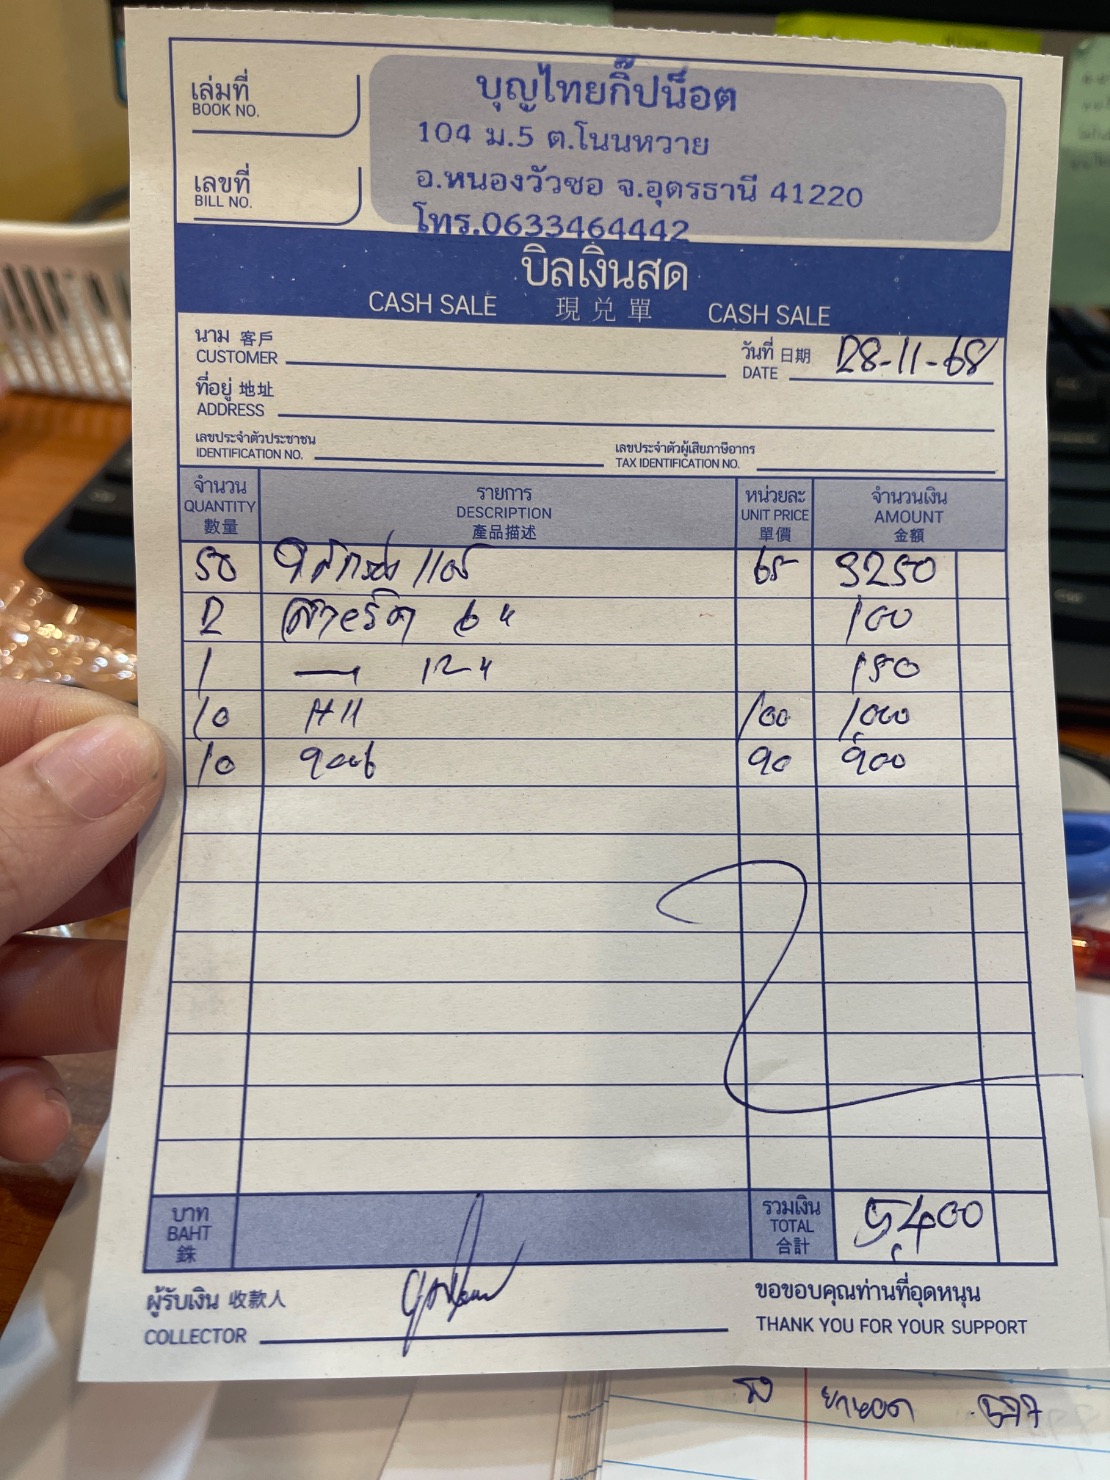 เล่มที่
BOOK NO.
เลขที่
BILL NO.
บุญไทยกิ๊ปน็อต
104 ม.5 ต.โนนหวาย
อ.หนองวัวซอ จ.อุดรธานี 41220
โทร.0633464442
บิลเงินสด
CASH SALE 現兌單 CASH SALE
นาม 客戶
CUSTOMER
วันที่ 日期
DATE 28-11-68
ที่อยู่ 地址
ADDRESS
เลขประจำตัวประชาชน
IDENTIFICATION NO.
เลขประจำตัวผู้เสียภาษีอากร
TAX IDENTIFICATION NO.
จำนวน รายการ หน่วยละ จำนวนเงิน
QUANTITY DESCRIPTION UNIT PRICE AMOUNT
數量 產品描述 單價 金額
50 65 3250
2 6" 100
1 12" 150
10 H11 100 1000
10 9006 90 900
บาท
BAHT
銖
รวมเงิน
TOTAL
合計
5,400
ผู้รับเงิน 收款人
COLLECTOR
ขอขอบคุณท่านที่อุดหนุน
THANK YOU FOR YOUR SUPPORT